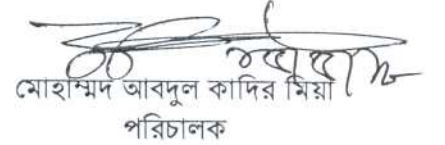 মোহাম্মদ আবদুল কাদির মিয়া
পরিচালক